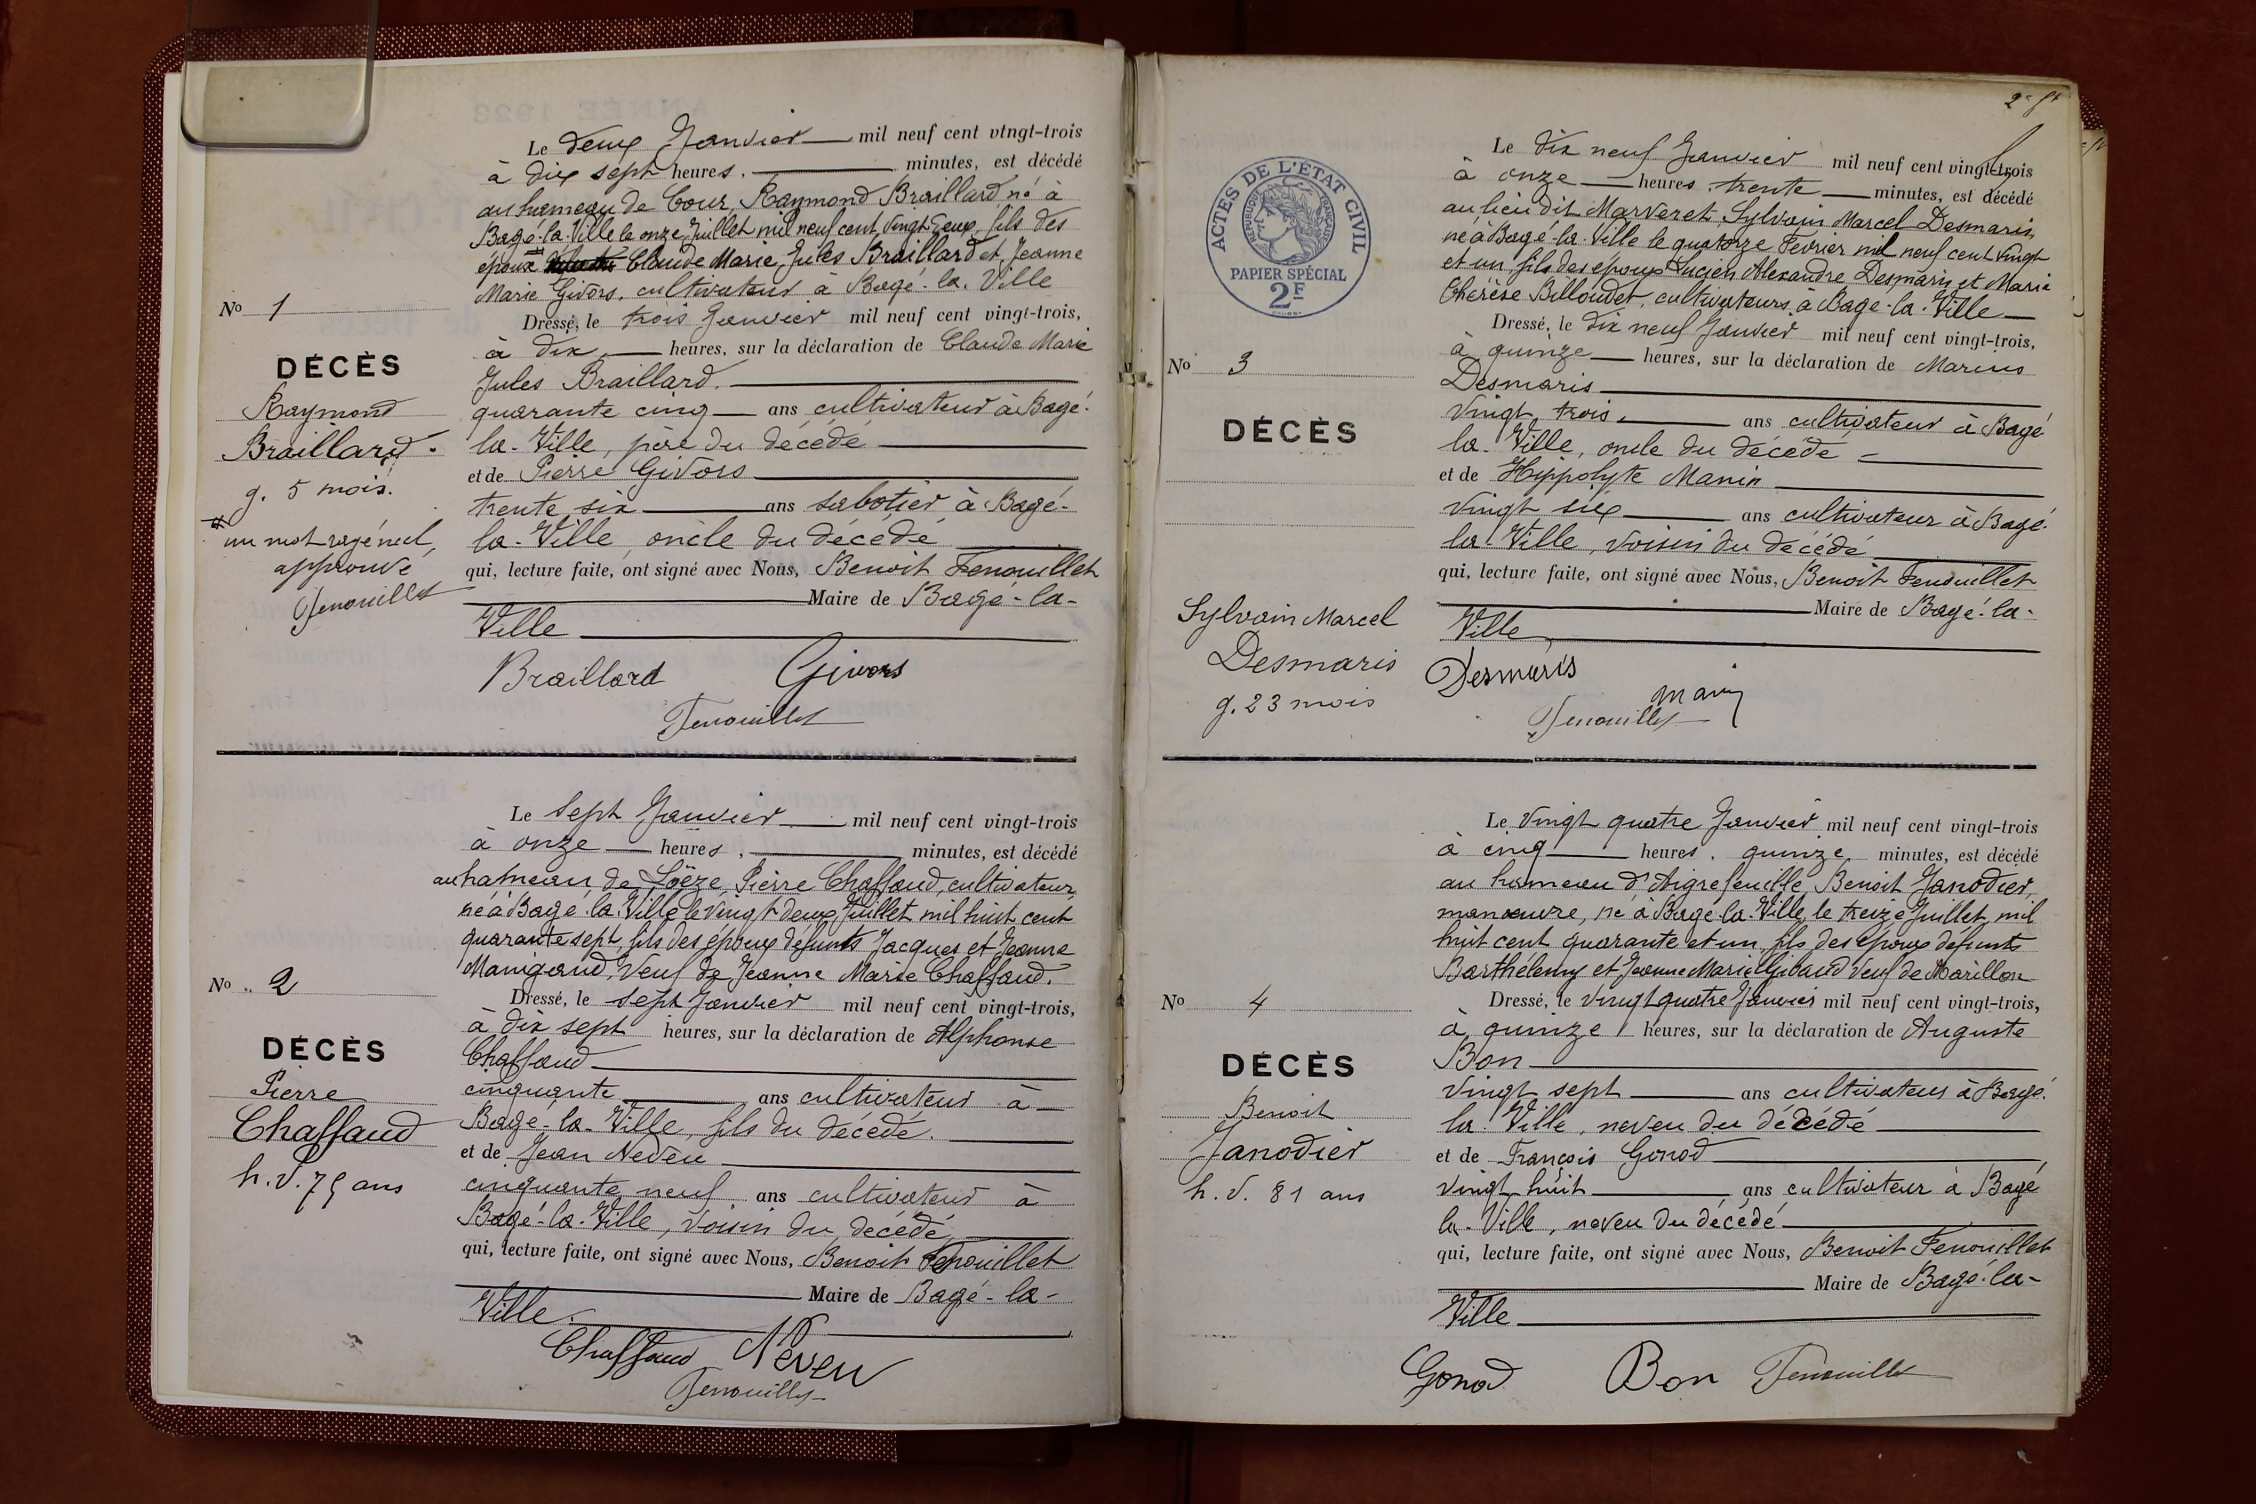 Le deux Janvier mil neuf cent vingt-trois
à dix sept heures, minutes, est décédé
au hameau de Cour, Raymond Braillard né à
Bagé-la-Ville le onze Juillet mil neuf cent vingt deux, fils des
époux Claude Marie Jules Braillard et Jeanne
Marie Givors, cultivateurs à Bagé-la-Ville
No 1
Dressé, le trois Janvier mil neuf cent vingt-trois,
à dix heures, sur la déclaration de Claude Marie
DÉCÈS
Jules Braillard.
Raymond
quarante cinq ans cultivateur à Bagé-
Braillard.
la-Ville, père du décédé
et de Pierre Givors
g. 5 mois.
trente six ans sabotier à Bagé-
un mot rayé nul,
la-Ville, oncle du décédé
approuvé
qui, lecture faite, ont signé avec Nous, Benoit Fenouillet
Fenouillet
Maire de Bagé-la-
Ville
Braillard Givors
Fenouillet
Le sept Janvier mil neuf cent vingt-trois
à onze heures, minutes, est décédé
au hameau de Loëze, Pierre Chaffaud, cultivateur,
né à Bagé-la-Ville le vingt deux Juillet mil huit cent
quarante sept, fils des époux défunts Jacques et Jeanne
Manigaud, veuf de Jeanne Marie Chaffaud.
No 2
Dressé, le sept Janvier mil neuf cent vingt-trois,
à dix sept heures, sur la déclaration de Alphonse
DÉCÈS
Chaffaud
Pierre
cinquante ans cultivateur à
Chaffaud
Bagé-la-Ville, fils du décédé.
et de Jean Neveu
h.v. 75 ans
cinquante neuf ans cultivateur à
Bagé-la-Ville, voisin du décédé
qui, lecture faite, ont signé avec Nous, Benoit Fenouillet
Maire de Bagé-la-
Ville.
Chaffaud Neveu
Fenouillet
2e ft
ACTES DE L'ÉTAT CIVIL
RÉPUBLIQUE FRANÇAISE
PAPIER SPÉCIAL
2F
Le dix neuf Janvier mil neuf cent vingt-trois
à onze heures trente minutes, est décédé
au lieu dit Marveret, Sylvain Marcel Desmaris,
né à Bagé-la-Ville le quatorze Février mil neuf cent vingt
et un, fils des époux Lucien Alexandre Desmaris et Marie
Thérèse Billoudet, cultivateurs à Bagé-la-Ville
Dressé, le dix neuf Janvier mil neuf cent vingt-trois,
No 3
à quinze heures, sur la déclaration de Marius
Desmaris
DÉCÈS
vingt trois ans cultivateur à Bagé
la-Ville, oncle du décédé
et de Hippolyte Manin
vingt six ans cultivateur à Bagé-
la-Ville, voisin du décédé
qui, lecture faite, ont signé avec Nous, Benoit Fenouillet
Sylvain Marcel
Maire de Bagé-la-
Ville,
Desmaris
g. 23 mois
Desmaris Manin
Fenouillet
Le vingt quatre Janvier mil neuf cent vingt-trois
à cinq heures, quinze minutes, est décédé
au hameau d'Aigrefeuille, Benoit Janodier,
manœuvre, né à Bagé-la-Ville, le treize Juillet, mil
huit cent quarante et un, fils des époux défunts
Barthélemy et Jeanne Marie veuf de Marillon
No 4
Dressé, le vingt quatre Janvier mil neuf cent vingt-trois,
à quinze heures, sur la déclaration de Auguste
DÉCÈS
Bon
vingt sept ans cultivateur à Bagé.
Benoit
la-Ville, neveu du décédé
Janodier
et de François Gonod
h.v. 81 ans
vingt huit ans cultivateur à Bagé
la-Ville, neveu du décédé
qui, lecture faite, ont signé avec Nous, Benoit Fenouillet
Maire de Bagé-la-
Ville
Gonod Bon Fenouillet